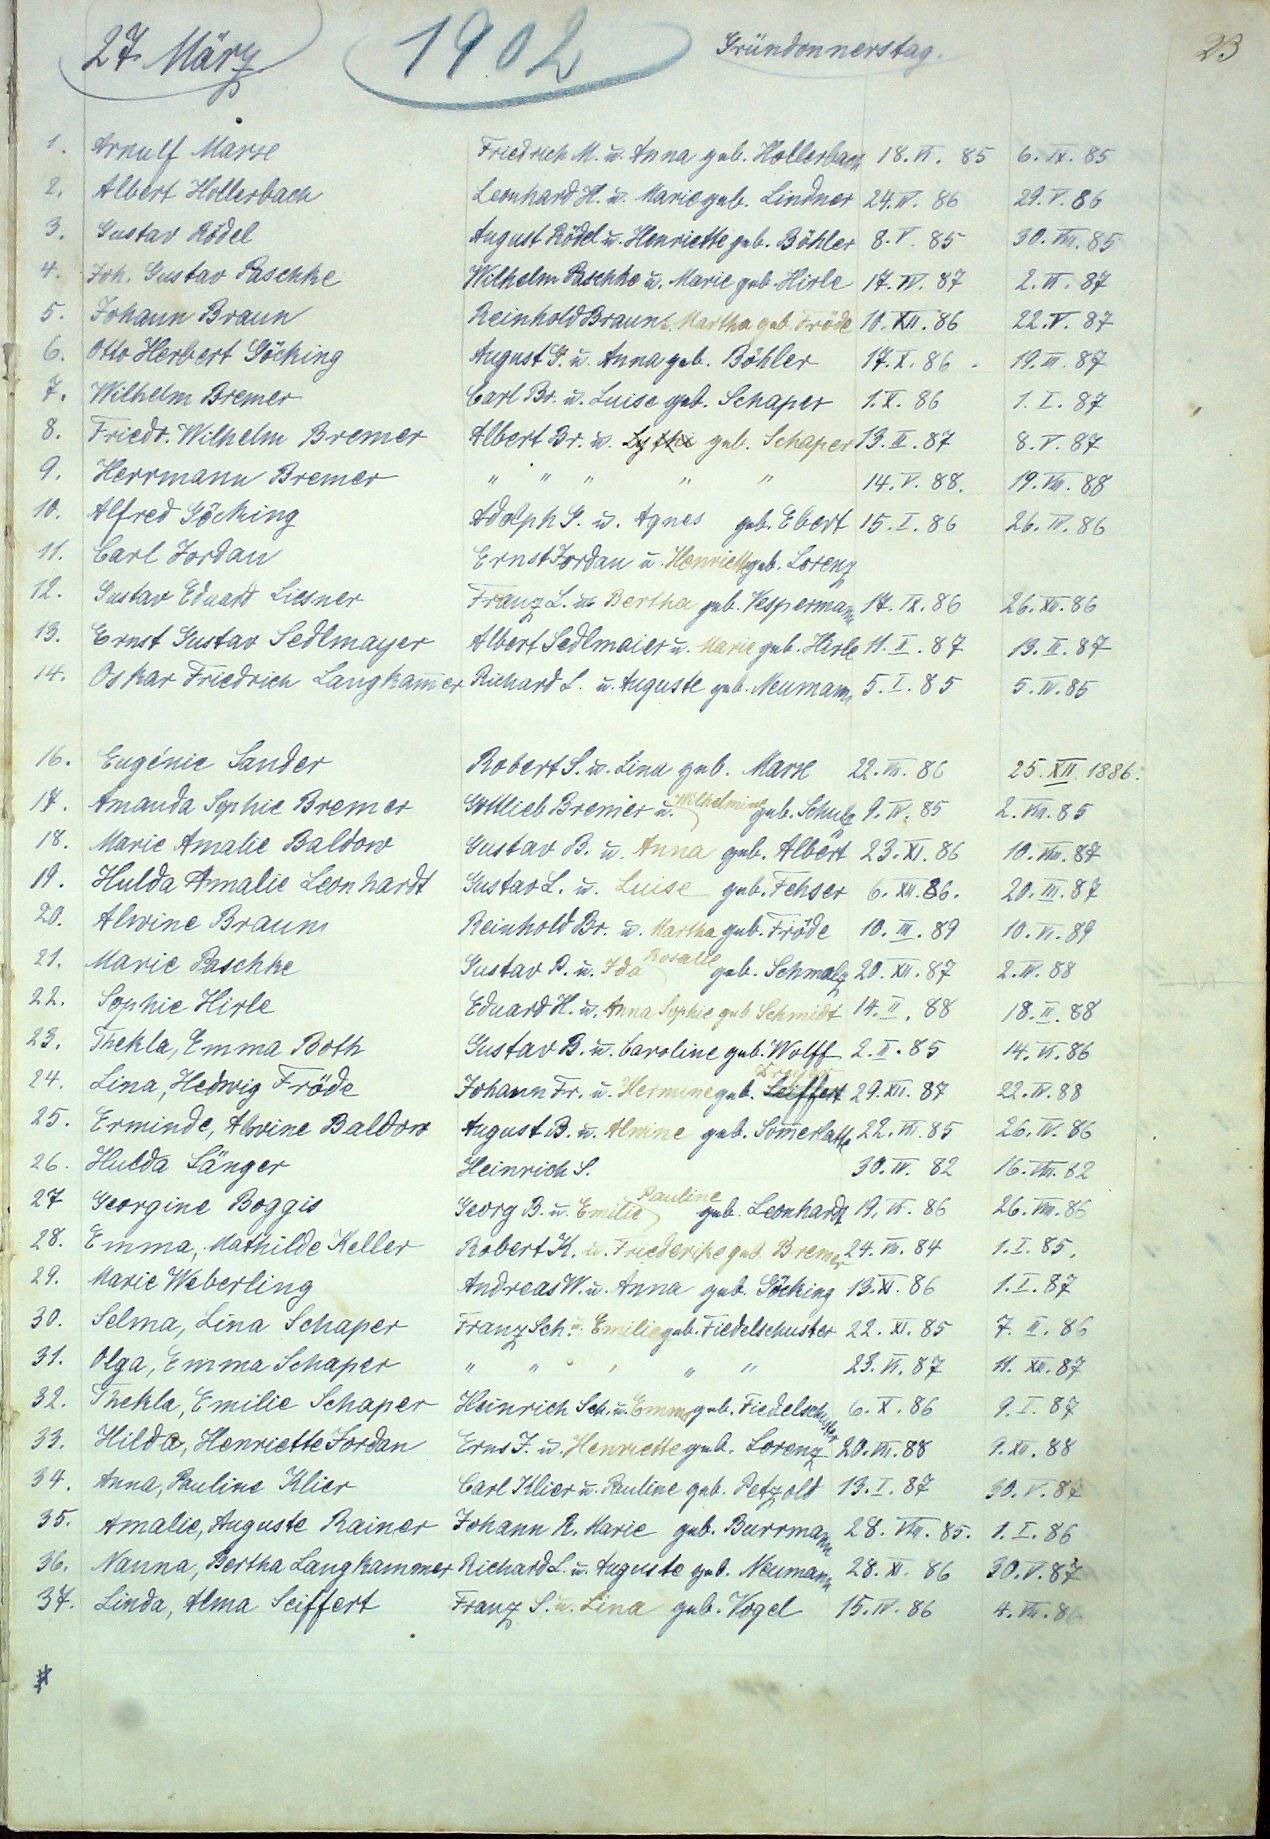 27. März 1902 Gründonnerstag. 23
1. Arnulf Marxe Friedrich M. u. Anna geb. Hollerbach 18. VI. 85 6. IX. 85
2. Albert Hollerbach Leonhard H. u. Marie geb. Lindner 24. IV. 86 29. V. 86
3. Gustav Rödel August Rödel u. Henriette geb. Böhler 8. V. 85 30. VIII. 85
4. Joh. Gustav Paschke Wilhelm Paschke u. Marie geb. Hirle 17. IV. 87 2. VI. 87
5. Johann Braun Reinhold Braun u. Martha geb. Fröde 10. XII. 86 22. V. 87
6. Otto Herbert Göcking August G. u. Anna geb. Böhler 17. X. 86 19. III. 87
7. Wilhelm Bremer Carl Br. u. Luise geb. Schaper 1. X. 86 1. I. 87
8. Friedr. Wilhelm Bremer Albert Br. u. geb. Schaper 13. II. 87 8. V. 87
9. Herrmann Bremer " " " " " 14. V. 88. 19. VIII. 88
10. Alfred Göcking Adolph G. u. Agnes geb. Ebert 15. I. 86 26. IV. 86
11. Carl Jordan Ernst Jordan u. Henriette geb. Lorenz
12. Gustav Eduard Liesner Franz L. u. Bertha geb. Vespermann 17. IX. 86 26. XII. 86
13. Ernst Gustav Sedlmayer Albert Sedlmaier u. Marie geb. Hirle 11. I. 87 13. II. 87
14. Oskar Friedrich Langkam̄er Richard L. u. Auguste geb. Neumann 5. I. 85 5. IV. 85
16. Eugénie Sander Robert S. u. Lina geb. Marxe 22. VI. 86 25. XII. 1886.
17. Amanda Sophie Bremer Gottlieb Bremer u. Wilhelmine geb. Schulz 9. IV. 85 2. VIII. 85
18. Marie Amalie Baldow Gustav B. u. Anna geb. Albert 23. XI. 86 10. VIII. 87
19. Hulda Amalie Leonhardt Gustav L. u. Luise geb. Fehser 6. XII. 86. 20. III. 87
20. Alwine Braun Reinhold Br. u. Martha geb. Fröde 10. III. 89 10. VI. 89
21. Marie Paschke Gustav P. u. Ida Rosalie geb. Schmalz 20. XII. 87 2. IV. 88
22. Sophie Hirle Eduard H. u. Anna Sophie geb. Schmidt 14. II. 88 18. II. 88
23. Thekla, Emma Both Gustav B. u. Caroline geb. Wolff 2. II. 85 14. VI. 86
24. Lina, Hedwig Fröde Johann Fr. u. Hermine geb. Seiffert 29. XII. 87 22. IV. 88
25. Erminde, Alwine Baldow August B. u. Alwine geb. Som̄erlatte 22. VI. 85 26. IV. 86
26. Hulda Sänger Heinrich S. 30. IV. 82 16. VIII. 82
27 Georgine Boggis Georg B. u. Emilie Pauline geb. Leonhardt 19. VI. 86 26. VIII. 86
28. Emma, Mathilde Keller Robert K. u. Friederike geb. Bremer 24. VII. 84 1. I. 85.
29. Marie Weberling Andreas W. u. Anna geb. Göcking 13. XI. 86 1. I. 87
30. Selma, Lina Schaper Franz Sch. u. Emilie geb. Fiedelschuster 22. XI. 85 7. II. 86
31. Olga, Emma Schaper " " " " " 23. VI. 87 11. XII. 87
32. Thekla, Emilie Schaper Heinrich Sch. u. Emma geb. Fiedelschuster 6. X. 86 9. I. 87
33. Hilda, Henriette Jordan Erns J. u. Henriette geb. Lorenz 20. VII. 88 9. XII. 88
34. Anna, Pauline Klier Carl Klier u. Pauline geb. Petzold 13. I. 87 30. V. 87
35. Amalie, Auguste Rainer Johann R. Marie geb. Burrmann 28. VIII. 85. 1. I. 86
36. Nanna, Bertha Langkammer Richard L. u. Auguste geb. Neumann 28. XI. 86 30. V. 87
37. Linda, Alma Seiffert Franz S. u. Lina geb. Vogel 15. IV. 86 4. VII. 86